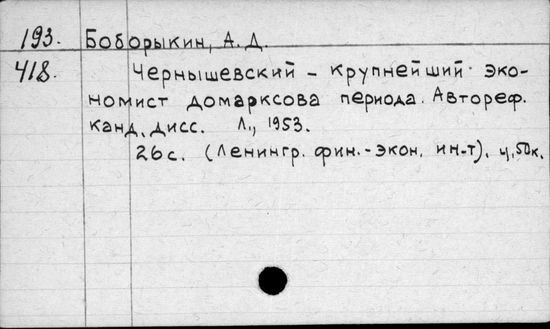 193. Боборыкин, А. Д.
418. Чернышевский – крупнейший эко-
номист домарксова периода. Автореф.
канд. дисс. Л., 1953.
26 с. (Ленингр. фин.-экон. ин-т). ц. 50 к.